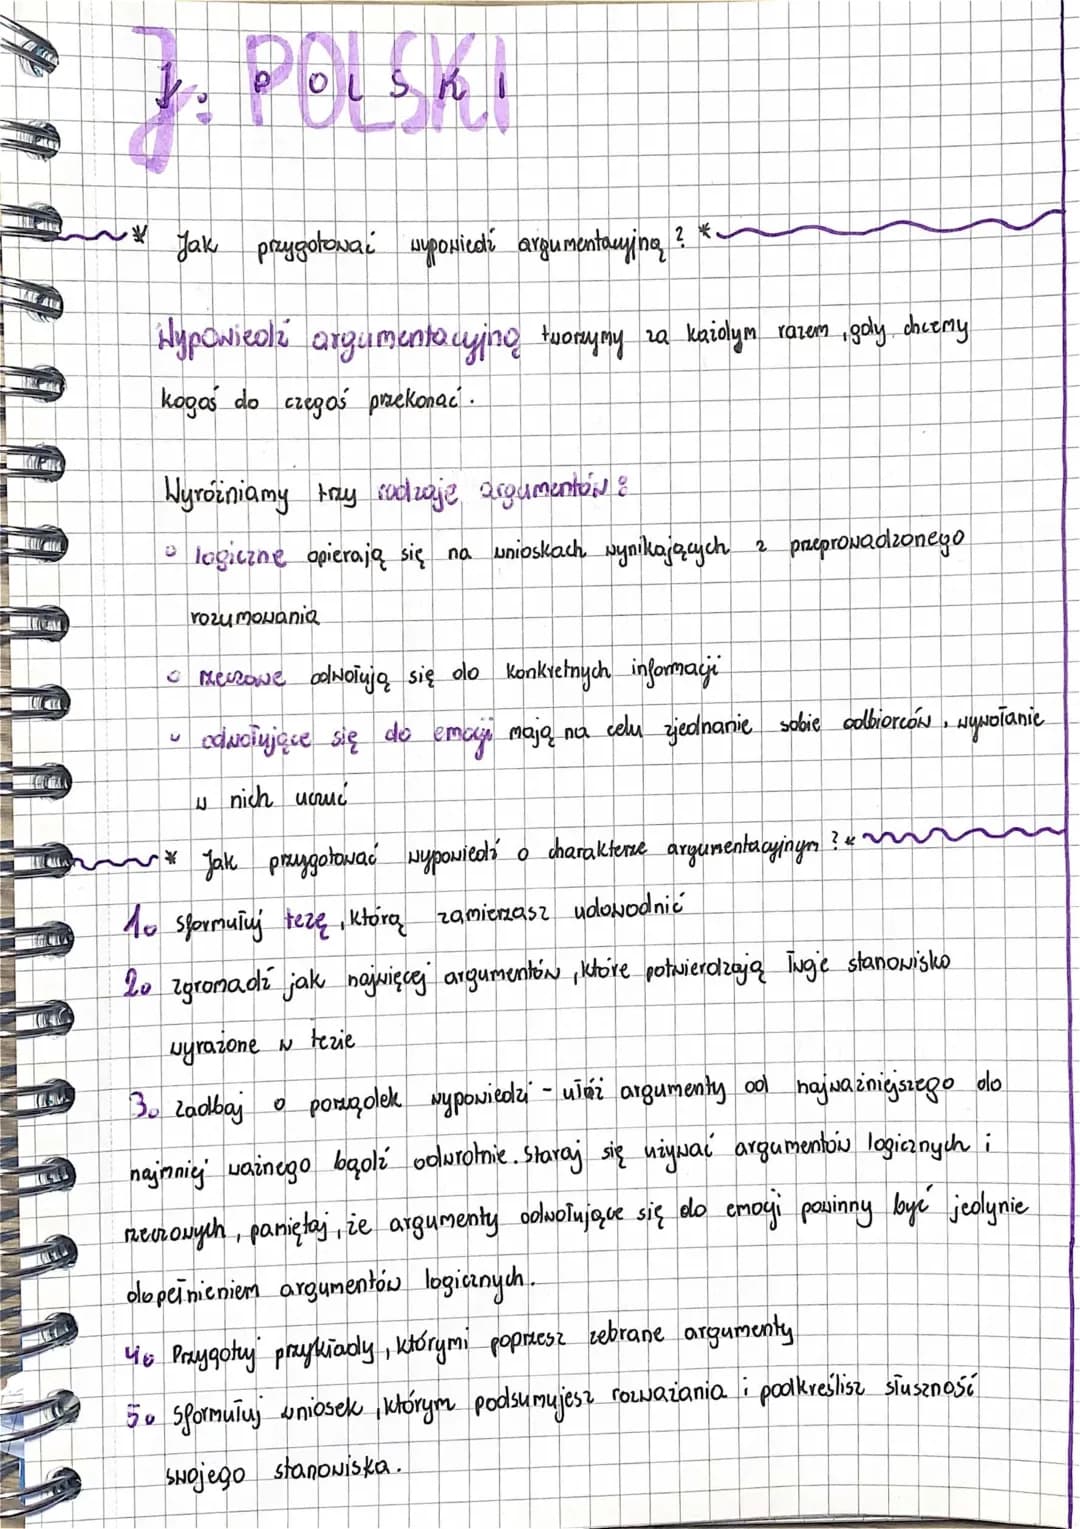 J. POLSKI
* Jak przygotować wypowiedź argumentacyjną? *
Wypowiedź argumentacyjną tworzymy za każdym razem, gdy chcemy
kogoś do czegoś przekonać.
Wyróżniamy trzy rodzaje argumentów:
• logiczne opierają się na wnioskach wynikających z przeprowadzonego
rozumowania
• rzeczowe odwołują się do konkretnych informacji
• odwołujące się do emocji mają na celu zjednanie sobie odbiorców, wywołanie
w nich uczuć
* Jak przygotować wypowiedź o charakterze argumentacyjnym? *
1. sformułuj tezę, którą zamierzasz udowodnić
2. zgromadź jak najwięcej argumentów, które potwierdzają Twoje stanowisko
wyrażone w tezie
3. zadbaj o porządek wypowiedzi - ułóż argumenty od najważniejszego do
najmniej ważnego bądź odwrotnie. Staraj się używać argumentów logicznych i
rzeczowych, pamiętaj, że argumenty odwołujące się do emocji powinny być jedynie
dopełnieniem argumentów logicznych.
4. Przygotuj przykłady, którymi poprzesz zebrane argumenty
5. sformułuj wniosek, którym podsumujesz rozważania i podkreślisz słuszność
swojego stanowiska.